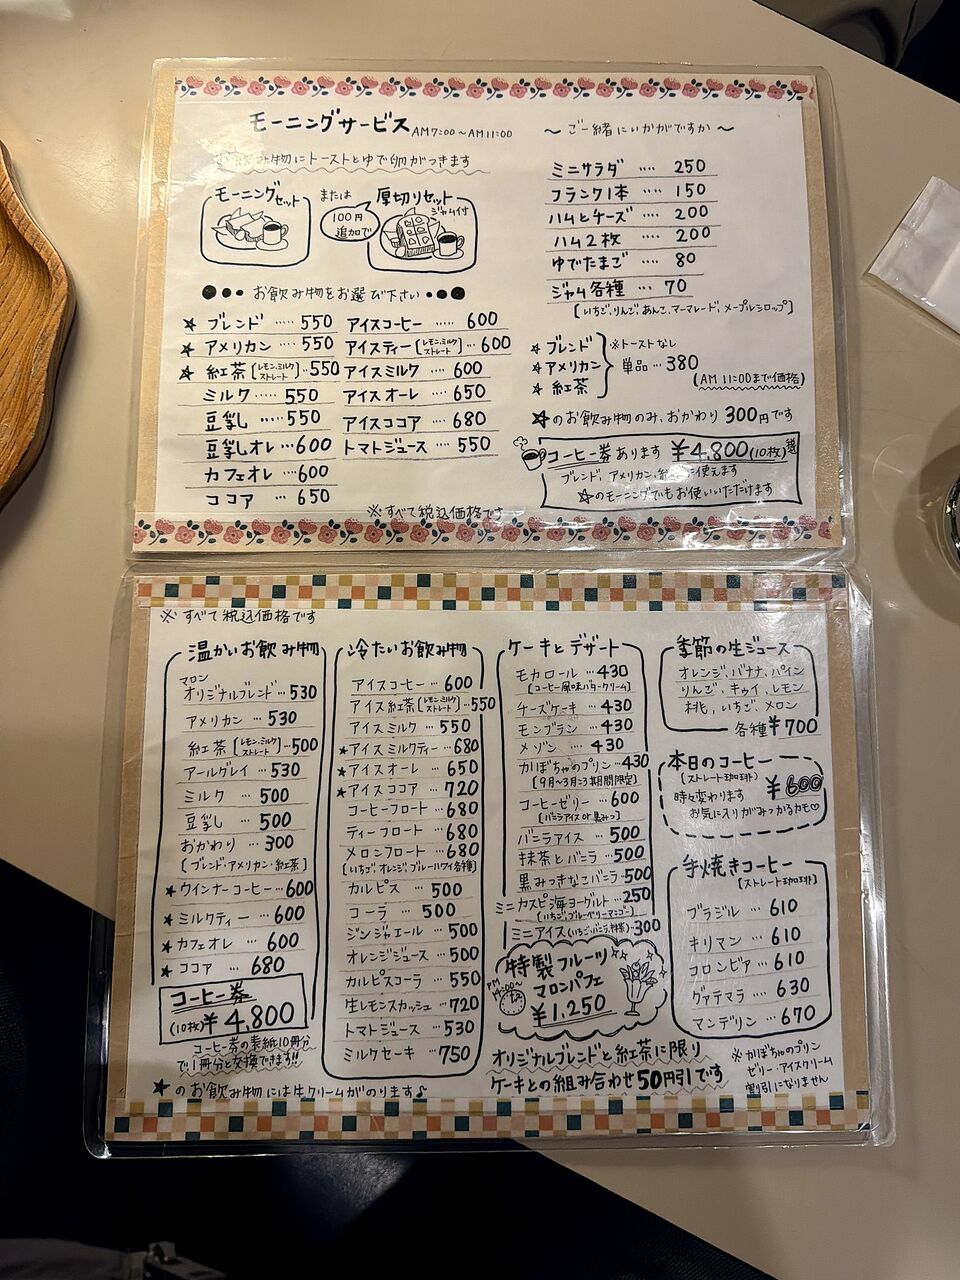 モーニングサービス AM7:00〜AM11:00
お飲み物にトーストとゆで卵がつきます
モーニングセット
または
100円追加で
厚切りセット
ジャム付
お飲み物をお選び下さい
★ ブレンド ····· 550
★ アメリカン ···· 550
★ 紅茶 [レモン.ミルク ストレート] ·· 550
ミルク ····· 550
豆乳 ···· 550
豆乳オレ ··· 600
カフェオレ ··· 600
ココア ··· 650
アイスコーヒー ····· 600
アイスティー [レモン.ミルク ストレート] ·· 600
アイスミルク ···· 600
アイスオーレ ···· 650
アイスココア ···· 680
トマトジュース ···· 550
※すべて税込価格です
〜 ご一緒にいかがですか 〜
ミニサラダ ···· 250
フランク1本 ···· 150
ハムとチーズ ···· 200
ハム2枚 ···· 200
ゆでたまご ···· 80
ジャム各種 ···· 70
[いちご,りんご,あんこ,マーマレード,メープルシロップ]
★ ブレンド
★ アメリカン
★ 紅茶
※トーストなし
単品 ··· 380
(AM 11:00まで価格)
★のお飲み物のみ、おかわり 300円です
コーヒー券あります ¥4,800(10枚)
ブレンド、アメリカン、紅茶に使えます
★のモーニングでもお使いいただけます
※すべて税込価格です
温かいお飲み物
マロン
オリジナルブレンド ··· 530
アメリカン ··· 530
紅茶 [レモン.ミルク ストレート] ··· 500
アールグレイ ··· 530
ミルク ··· 500
豆乳 ··· 500
おかわり ··· 300
[ブレンド・アメリカン・紅茶]
★ ウインナーコーヒー ··· 600
★ ミルクティー ··· 600
★ カフェオレ ··· 600
★ ココア ··· 680
コーヒー券
(10枚) ¥4,800
コーヒー券の表紙10冊分
で1冊分と交換できます!!
★のお飲み物には生クリームがのります♪
冷たいお飲み物
アイスコーヒー ··· 600
アイス紅茶 [レモン.ミルク ストレート] ··· 550
アイスミルク ··· 550
★ アイスミルクティー ··· 680
★ アイスオーレ ··· 650
★ アイスココア ··· 720
コーヒーフロート ··· 680
ティーフロート ··· 680
メロンフロート ··· 680
[いちご,オレンジ,ブルーハワイ各種]
カルピス ··· 500
コーラ ··· 500
ジンジャエール ··· 500
オレンジジュース ··· 500
カルピスコーラ ··· 550
生レモンスカッシュ ··· 720
トマトジュース ··· 530
ミルクセーキ ··· 750
ケーキとデザート
モカロール ··· 430
[コーヒー風味バタークリーム]
チーズケーキ ··· 430
モンブラン ··· 430
メゾン ··· 430
かぼちゃのプリン ··· 430
[9月〜3月ごろ期間限定]
コーヒーゼリー ··· 600
[バニラアイス or 黒みつ]
バニラアイス ··· 500
抹茶とバニラ ··· 500
黒みつきなこバニラ ··· 500
ミニカスピ海ヨーグルト ··· 250
[いちご,ブルーベリー,マンゴー]
ミニアイス (いちご,バニラ,抹茶) ··· 300
PM 14:00〜
特製フルーツ
マロンパフェ
¥1,250
オリジナルブレンドと紅茶に限り
ケーキとの組み合わせ50円引です
季節の生ジュース
オレンジ、バナナ、パイン
りんご、キウイ、レモン
桃、いちご、メロン
各種 ¥700
本日のコーヒー
(ストレート珈琲)
時々変わります ¥600
お気に入りがみつかるカモ♡
手焼きコーヒー
[ストレート珈琲]
ブラジル ··· 610
キリマン ··· 610
コロンビア ··· 610
グァテマラ ··· 630
マンデリン ··· 670
※かぼちゃのプリン
ゼリー・アイスクリーム
割引になりません